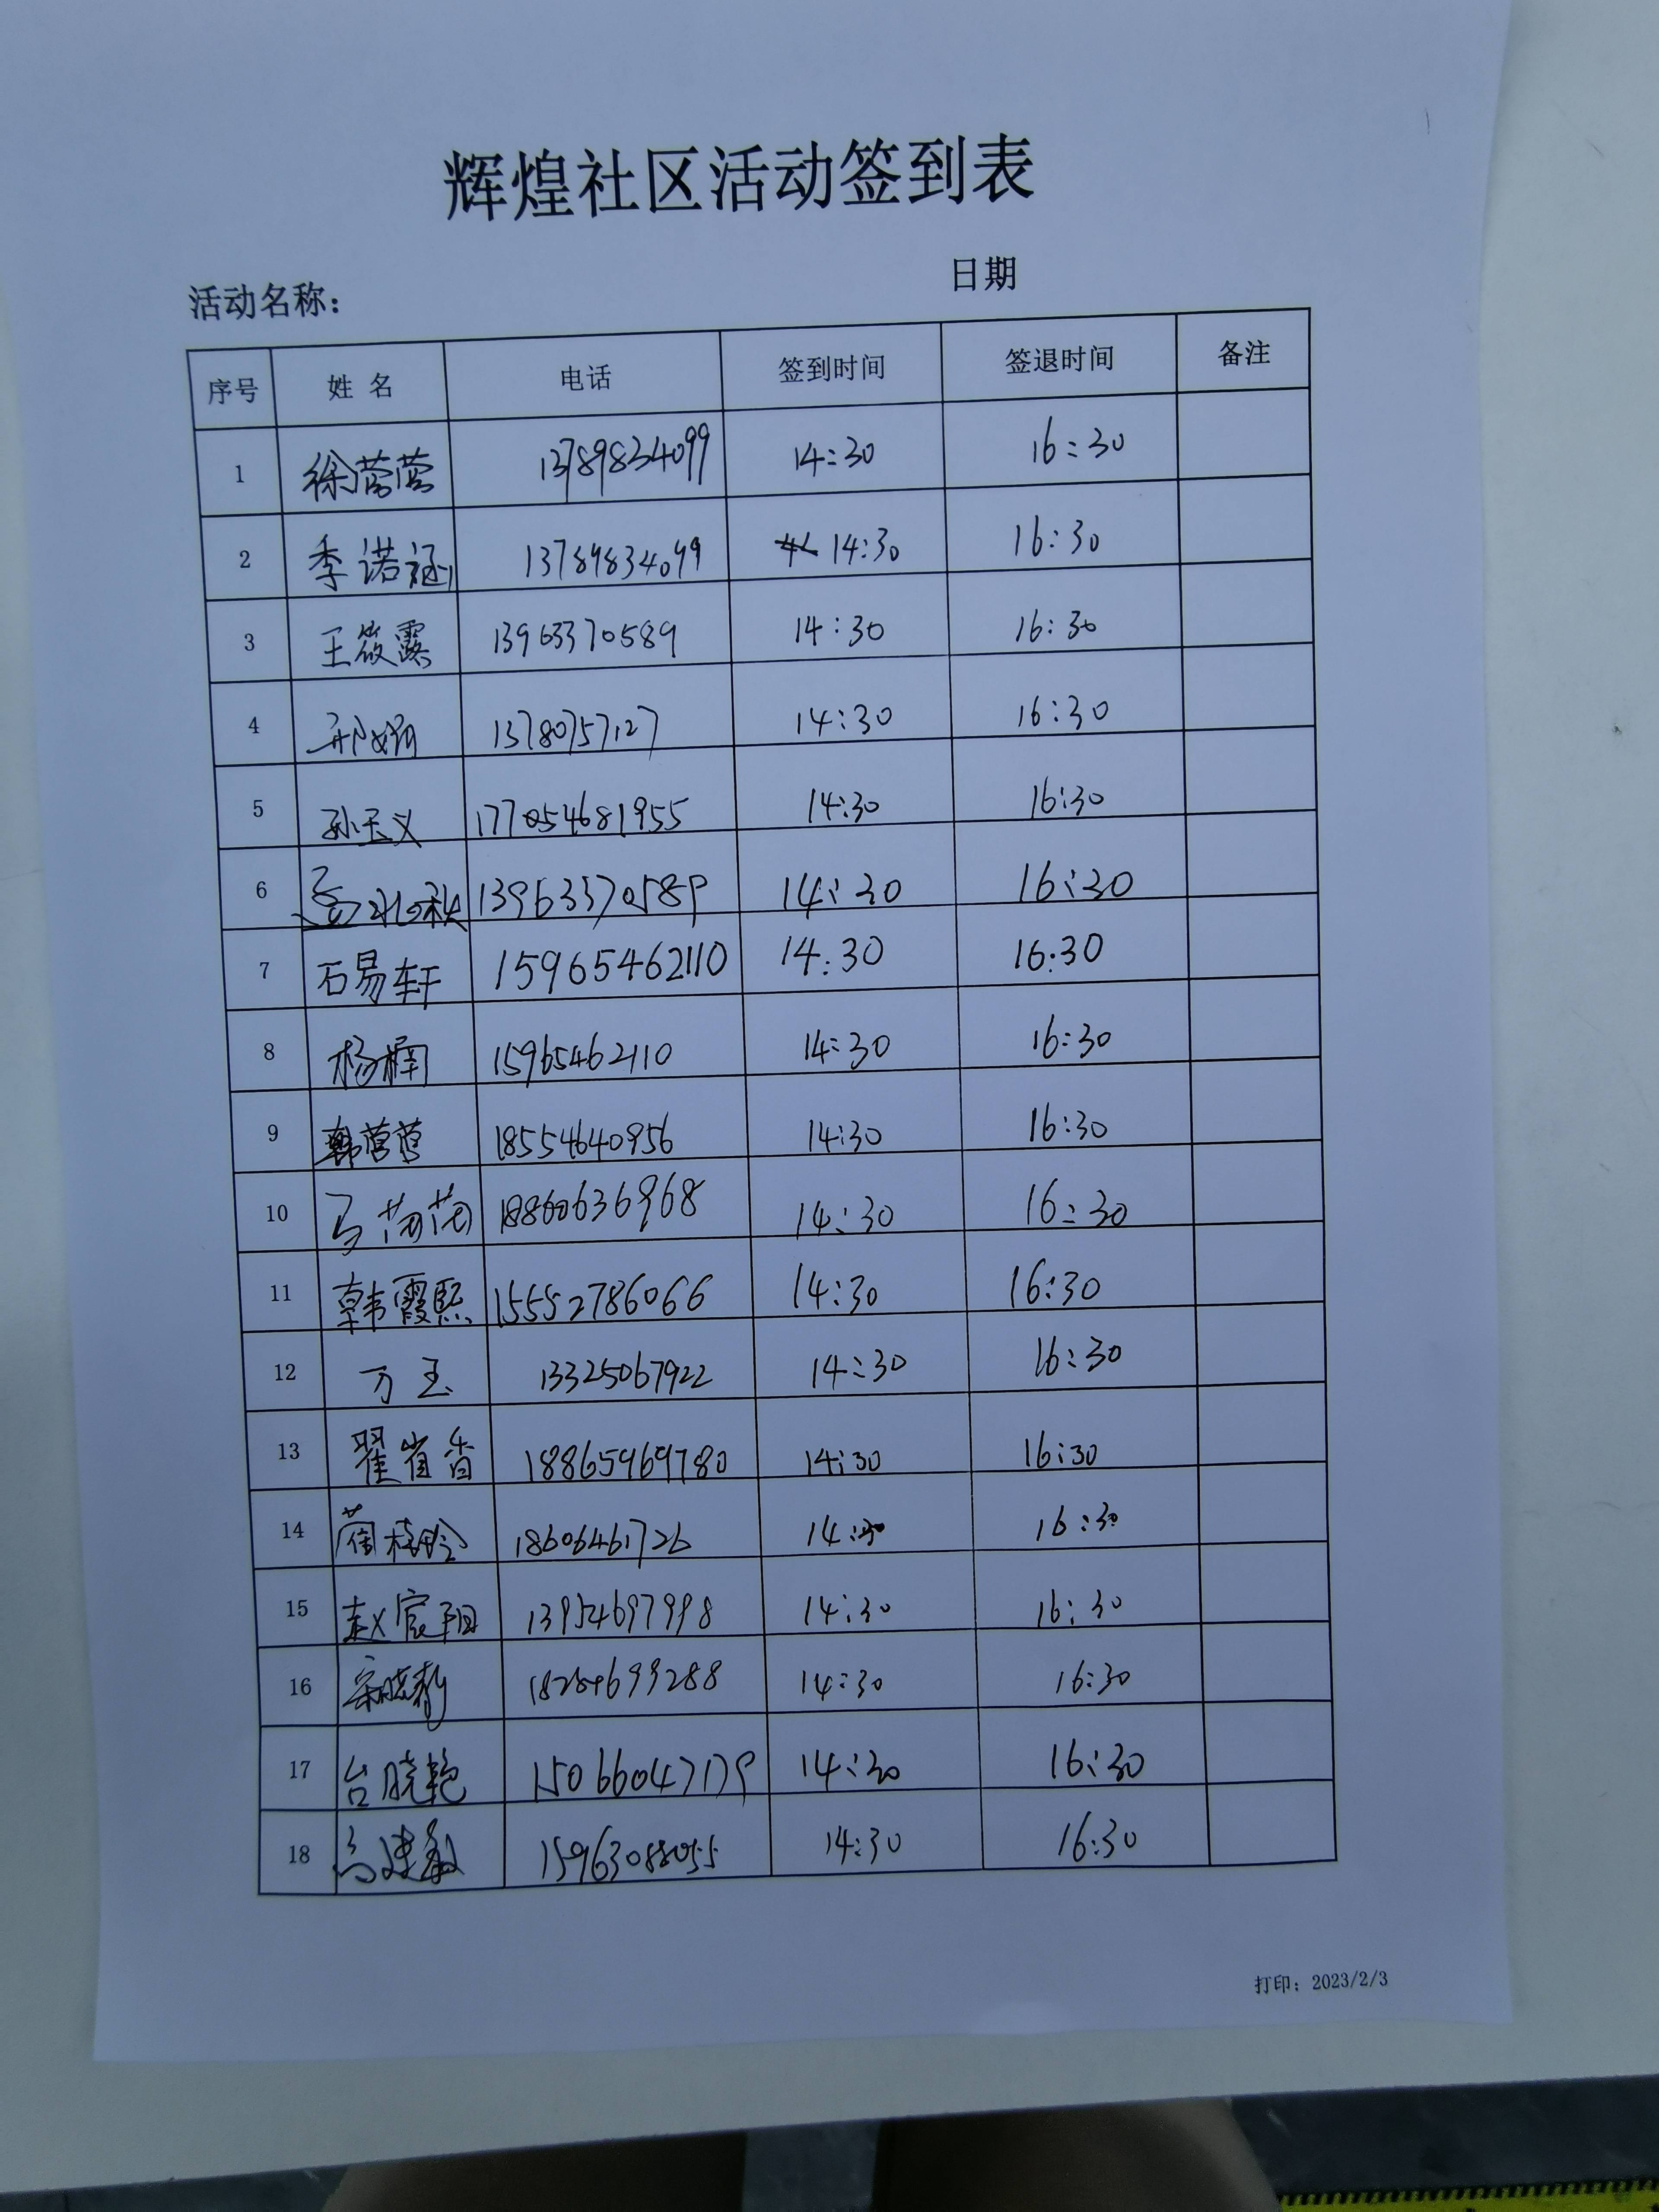 辉煌社区活动签到表
活动名称： 日期
序号 姓 名 电话 签到时间 签退时间 备注
1 徐莹莹 13789834099 14:30 16:30
2 季诺涵 13789834099 14:30 16:30
3 王筱露 13963370589 14:30 16:30
4 13780757127 14:30 16:30
5 孙玉义 177054681955 14:30 16:30
6 13963370589 14:30 16:30
7 石易轩 15965462110 14:30 16:30
8 杨楠 15965462110 14:30 16:30
9 韩莺莺 18554640956 14:30 16:30
10 马茵茵 18860636968 14:30 16:30
11 韩霞熙 15552786066 14:30 16:30
12 万玉 13325067922 14:30 16:30
13 翟省香 18865969780 14:30 16:30
14 18606461726 14:30 16:30
15 赵宸翔 13954697998 14:30 16:30
16 宋晓静 18254699288 14:30 16:30
17 台晓艳 15066047179 14:30 16:30
18 高建敏 15963088055 14:30 16:30
打印：2023/2/3